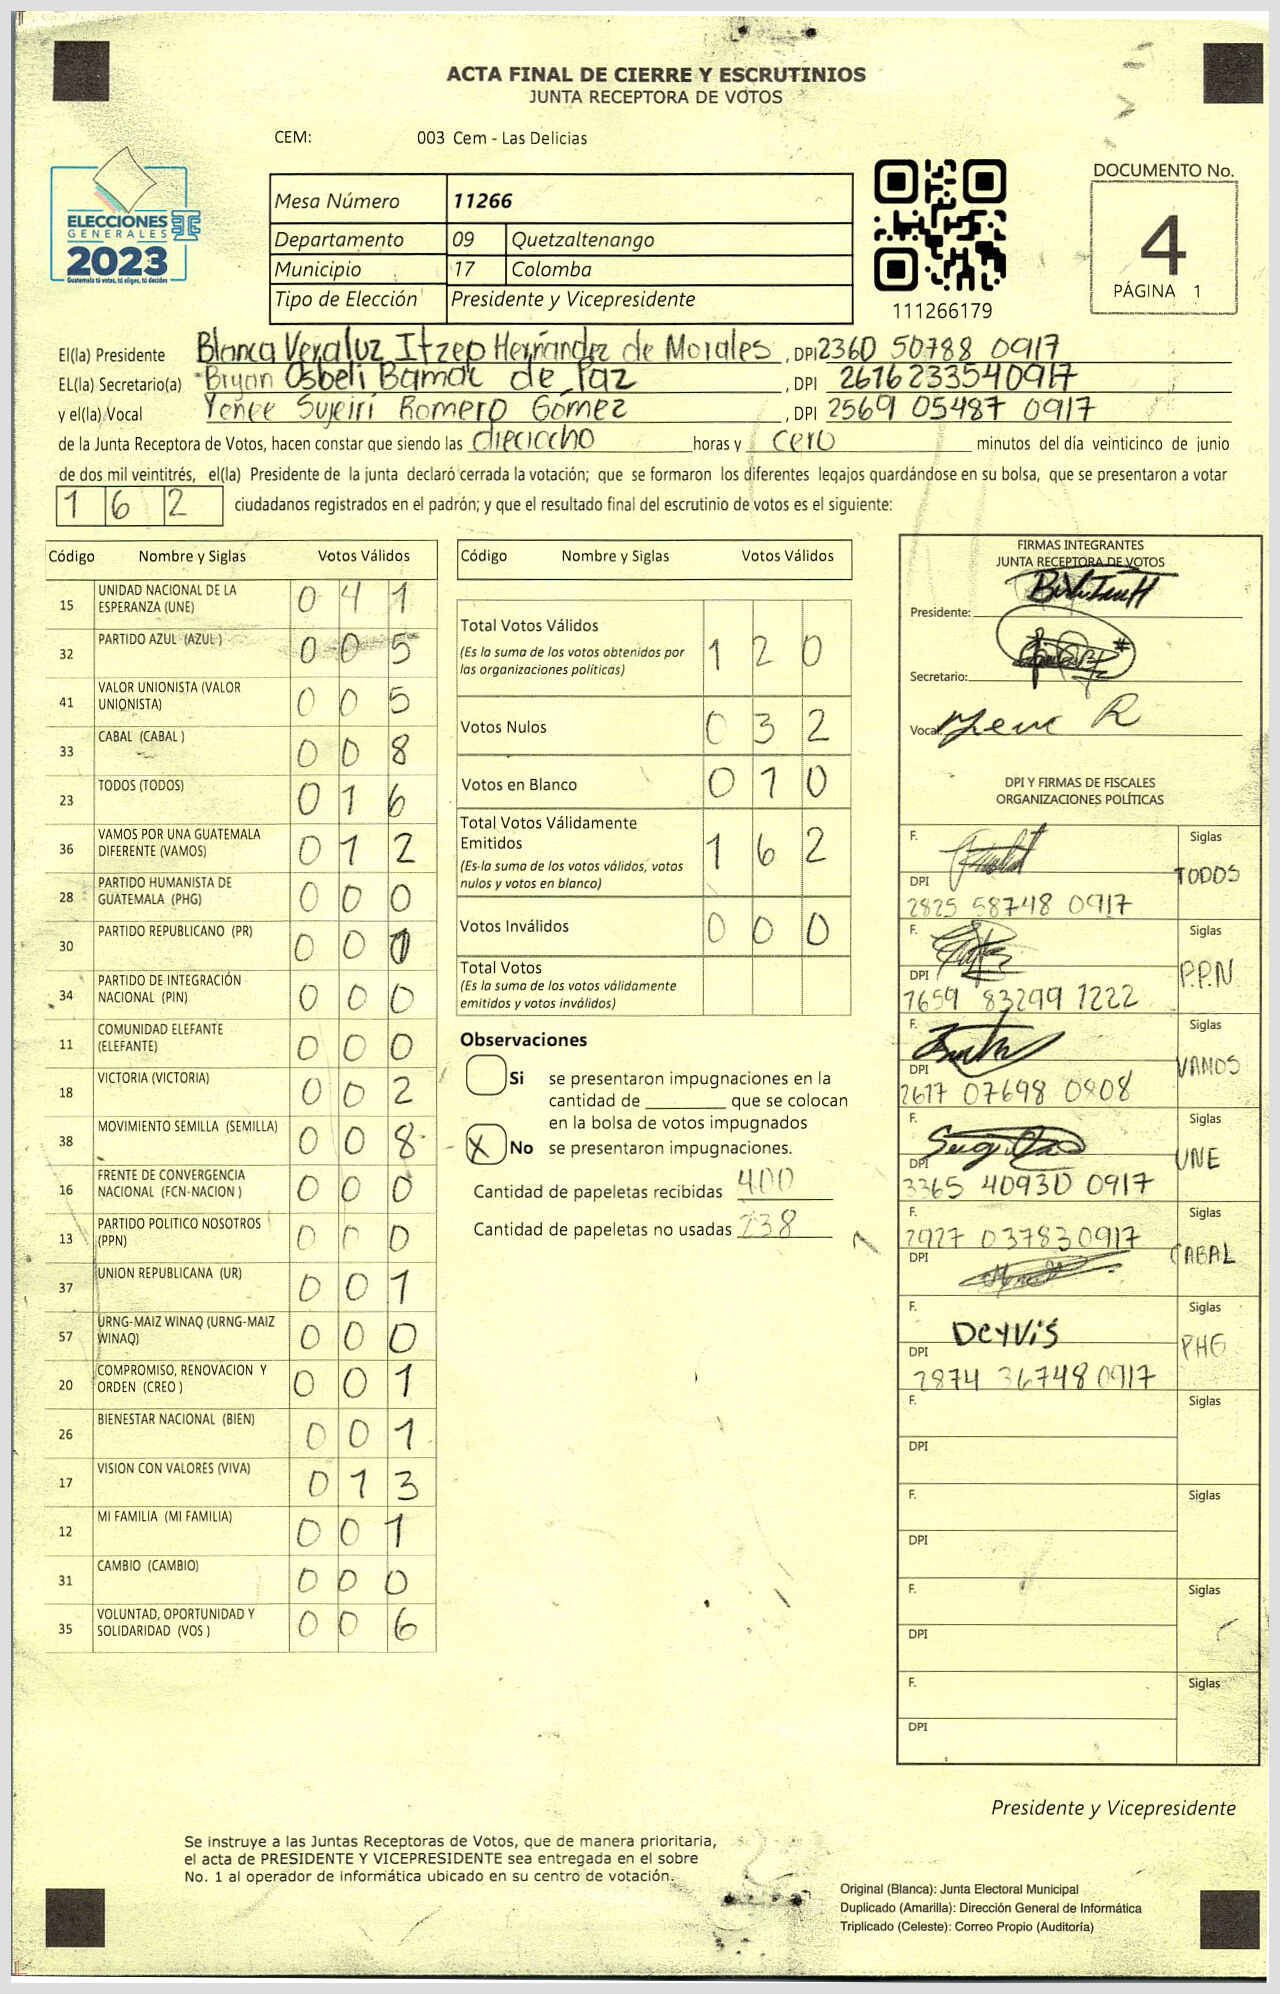 ACTA FINAL DE CIERRE Y ESCRUTINIOS
JUNTA RECEPTORA DE VOTOS
CEM: 003 Cem - Las Delicias
ELECCIONES
GENERALES
2023
Guatemala tú votas, tú eliges, tú decides
Mesa Número 11266
Departamento 09 Quetzaltenango
Municipio 17 Colomba
Tipo de Elección Presidente y Vicepresidente
111266179
DOCUMENTO No.
4
PÁGINA 1
El(la) Presidente Blanca Veraluz Itzep Hernández de Morales , DPI 2360 50788 0917
EL(la) Secretario(a) Bryan Osbeli Bamac de Paz , DPI 2616233540917
y el(la) Vocal Yenee Sujeiri Romero Gómez , DPI 2569 05487 0917
de la Junta Receptora de Votos, hacen constar que siendo las dieciocho horas y cero minutos del día veinticinco de junio
de dos mil veintitrés, el(la) Presidente de la junta declaró cerrada la votación; que se formaron los diferentes legajos guardándose en su bolsa, que se presentaron a votar
162 ciudadanos registrados en el padrón; y que el resultado final del escrutinio de votos es el siguiente:
Código Nombre y Siglas Votos Válidos
15 UNIDAD NACIONAL DE LA ESPERANZA (UNE) 041
32 PARTIDO AZUL (AZUL ) 005
41 VALOR UNIONISTA (VALOR UNIONISTA) 005
33 CABAL (CABAL ) 008
23 TODOS (TODOS) 016
36 VAMOS POR UNA GUATEMALA DIFERENTE (VAMOS) 012
28 PARTIDO HUMANISTA DE GUATEMALA (PHG) 000
30 PARTIDO REPUBLICANO (PR) 00
34 PARTIDO DE INTEGRACIÓN NACIONAL (PIN) 000
11 COMUNIDAD ELEFANTE (ELEFANTE) 000
18 VICTORIA (VICTORIA) 002
38 MOVIMIENTO SEMILLA (SEMILLA) 008
16 FRENTE DE CONVERGENCIA NACIONAL (FCN-NACION ) 000
13 PARTIDO POLITICO NOSOTROS (PPN) 000
37 UNION REPUBLICANA (UR) 001
57 URNG-MAIZ WINAQ (URNG-MAIZ WINAQ) 000
20 COMPROMISO, RENOVACION Y ORDEN (CREO ) 001
26 BIENESTAR NACIONAL (BIEN) 001
17 VISION CON VALORES (VIVA) 013
12 MI FAMILIA (MI FAMILIA) 001
31 CAMBIO (CAMBIO) 000
35 VOLUNTAD, OPORTUNIDAD Y SOLIDARIDAD (VOS ) 006
Código Nombre y Siglas Votos Válidos
Total Votos Válidos 120
(Es la suma de los votos obtenidos por
las organizaciones politicas)
Votos Nulos 032
Votos en Blanco 010
Total Votos Válidamente
Emitidos 162
(Es la suma de los votos válidos, votos
nulos y votos en blanco)
Votos Inválidos 000
Total Votos
(Es la suma de los votos válidamente
emitidos y votos inválidos)
Observaciones
Si se presentaron impugnaciones en la
cantidad de ________ que se colocan
en la bolsa de votos impugnados
X No se presentaron impugnaciones.
Cantidad de papeletas recibidas 400
Cantidad de papeletas no usadas 238
FIRMAS INTEGRANTES
JUNTA RECEPTORA DE VOTOS
Presidente:
Secretario:
Vocal: R
DPI Y FIRMAS DE FISCALES
ORGANIZACIONES POLÍTICAS
F. Siglas
TODOS
DPI
2825 58748 0917
F. Siglas
P.P.N
DPI
1659 83299 1222
F. Siglas
VAMOS
DPI
2617 07698 0808
F. Siglas
UNE
DPI
3365 40930 0917
F. Siglas
2927 037830917
DPI CABAL
F. Siglas
Deyvis
PHG
DPI
2874 36748 0917
F. Siglas
DPI
F. Siglas
DPI
F. Siglas
DPI
F. Siglas
DPI
Presidente y Vicepresidente
Se instruye a las Juntas Receptoras de Votos, que de manera prioritaria,
el acta de PRESIDENTE Y VICEPRESIDENTE sea entregada en el sobre
No. 1 al operador de informática ubicado en su centro de votación.
Original (Blanca): Junta Electoral Municipal
Duplicado (Amarilla): Dirección General de Informática
Triplicado (Celeste): Correo Propio (Auditoría)